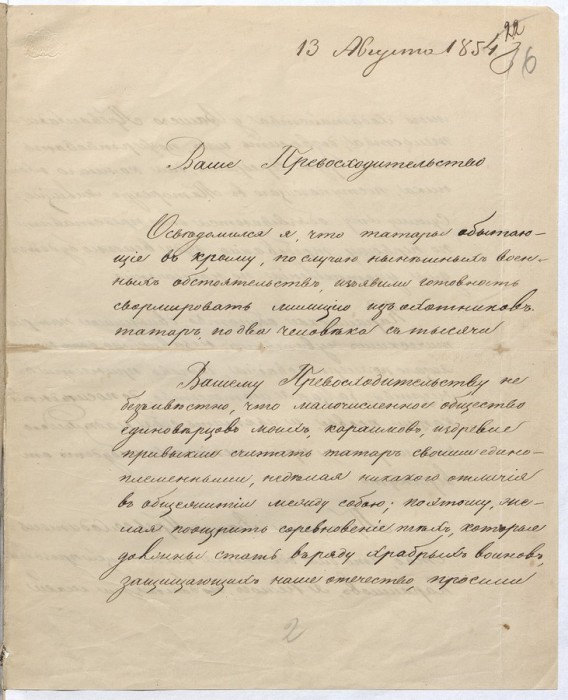 22
13 Августа 1854
36
Ваше Превосходительство
Освѣдомился я, что татары обытаю-
щіе въ крыму, по случаю нынѣшнихъ воен-
ныхъ обстоятельствъ, изъявили готовность
сформировать милицію изъ охотниковъ
татаръ, по два человѣка съ тысячи
Вашему Превосходительству не
безъизвѣстно, что малочисленное общество
единовѣрцовъ моихъ, караимовъ, издревле
привыкли считать татаръ своими едино-
племенными, недѣлая никакого отличія
въ общежитіи между собою; поэтому, же-
лая поощрить соревновеніе тѣхъ, которые
должны стать въ ряду храбрыхъ воиновъ,
защищающихъ наше отечество, просили
2